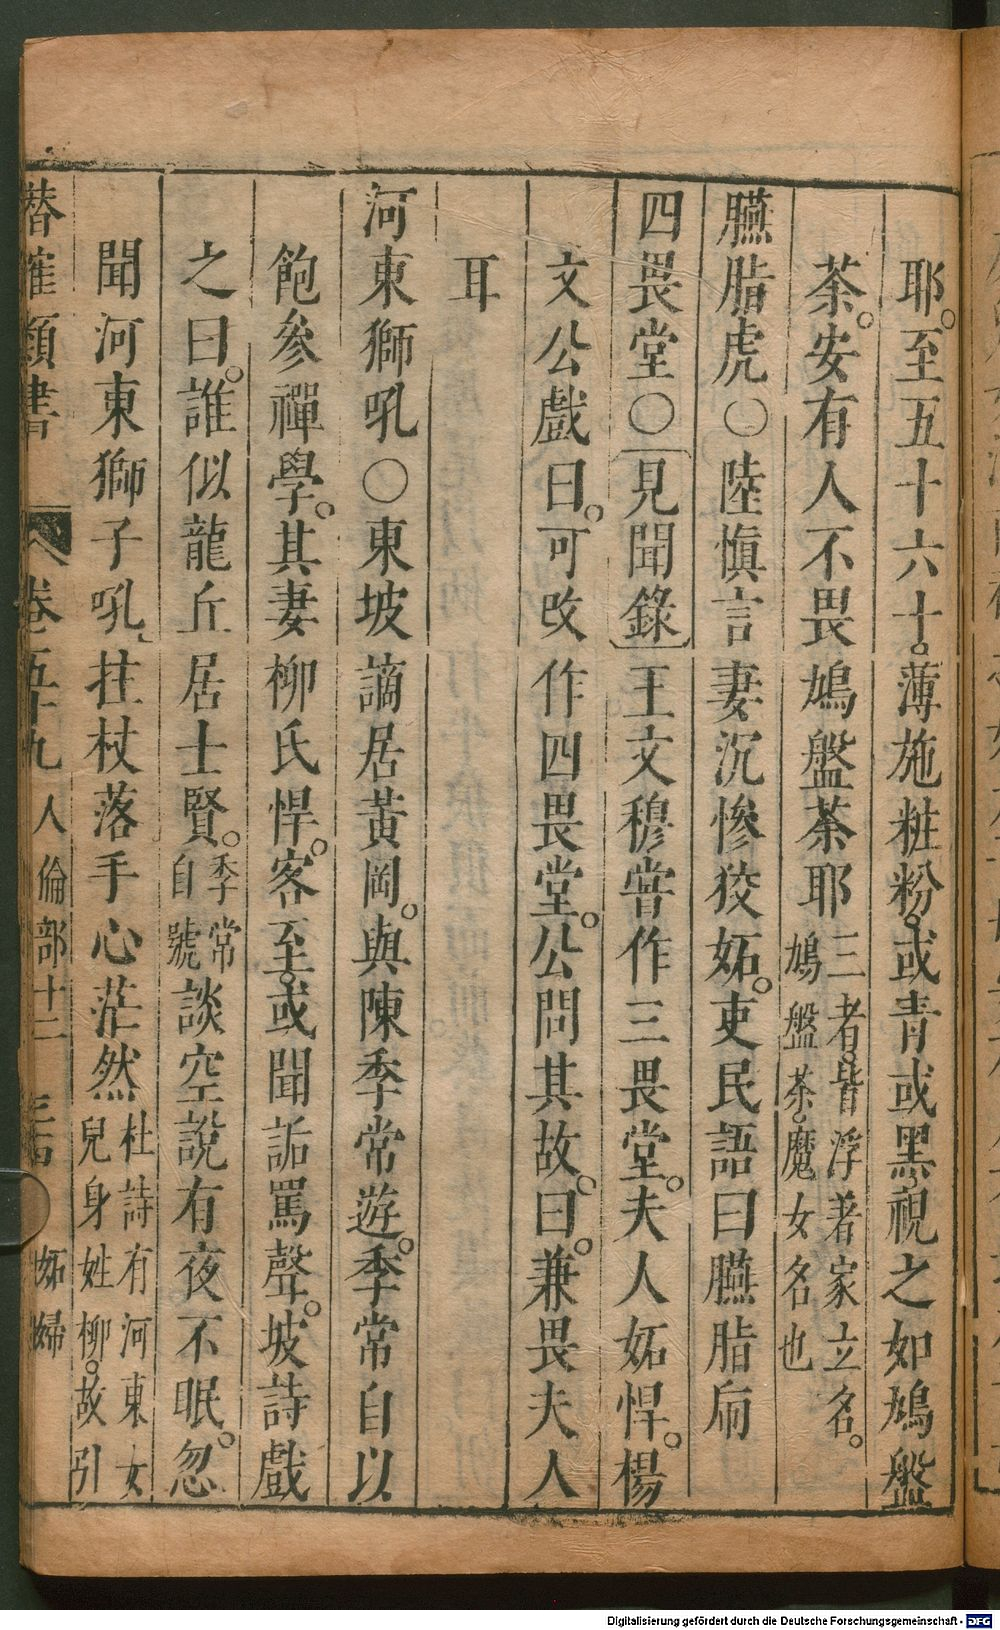 耶。至五十六十。薄施粧粉。或青或黑。視之如鳩盤
荼。安有人不畏鳩盤荼耶三者。皆浮著家立名。鳩盤荼。魔女名也
臙脂虎○陸慎言妻沉慘狡妬。吏民語曰臙脂虎
四畏堂○〔見聞錄〕王文穆嘗作三畏堂。夫人妬悍。楊
文公戲曰。可改作四畏堂。公問其故。曰。兼畏夫人
耳
河東獅吼○東坡謫居黃岡。與陳季常遊。季常自以
飽參禪學。其妻柳氏悍。客至。或聞詬罵聲。坡詩戲
之曰。誰似龍丘居士賢。季常自號談空說有夜不眠。忽
聞河東獅子吼、拄杖落手心茫然杜詩有河東女兒身姓柳。故引
潛確類書 卷五十九 人倫部十二 妬婦
Digitalisierung gefördert durch die Deutsche Forschungsgemeinschaft - DFG